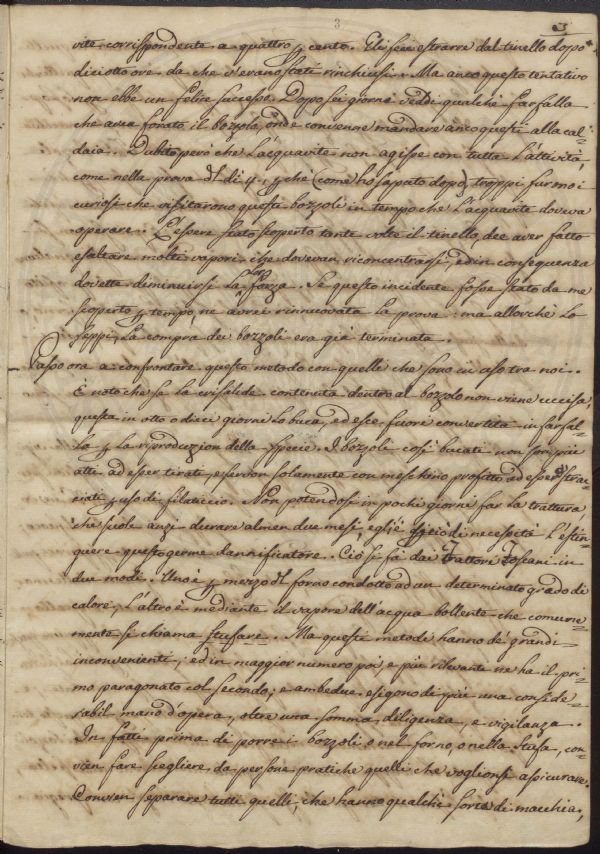 3
3
vite corrispondente a quattro p cento. Eli feci estrarre dal tinello dopo
diciotto ore da che v'erano stati rinchiusi. Ma anco questo tentativo
non ebbe un felice successo. Dopo sei giorni veddi qualche farfalla
che avea forato il bozzolo, onde convenne mandare anco questi alla cal=
daia. Dubito però che l'acquavite non agisse con tutta l'attività,
come nella prova del dì 4., p che (come hò saputo dopo) troppi furmo i
curiosi che visitarono questi bozzoli in tempo che l'acquavite doveva
operare. L'essere stato scoperto tante volte il tinello, dee aver fatto
esaltare molti vapori che dovevan riconcentrarsi, ed in conseguenza
dovette diminuirsi la lor forza. Se questo incidente fosse stato da me
scoperto p tempo, ne avrei rinnuovata la prova: ma allorchè lo
seppi, la compra dei bozzoli era già terminata.
Passo ora a confrontare questo metodo con quelli che sono in uso tra noi.
È noto che se la crisalide contenuta dentro al bozzolo non viene uccisa,
questa in otto o dieci giorni lo buca, ed esce fuori convertita in farfal=
la p la riproduzion della specie. I bozzoli così bucati non son più
atti ad esser tirati, e servon solamente con meschino profitto ad esser strac=
ciati p uso di filaticcio. Non potendosi in pochi giorni far la trattura
che suole anzi durare almen due mesi, egli è di necessità l'estin=
guere questo germe dannificatore. Ciò si fà dai Trattori Toscani in
due modi. Uno è p mezzo del forno condotto ad un determinato grado di
calore; l'altro è mediante il vapore dell'acqua bollente che comune=
mente si chiama stufare. Ma questi metodi hanno de' grandi
inconvenienti, ed in maggior numero poi, e più rilevante ne ha il pri=
mo paragonato col secondo; e ambedue esigono di più una conside=
rabil mano d'opera, oltre una somma diligenza, e vigilanza.
In fatti prima di porre i bozzoli o nel forno, o nella stufa, con=
vien fare scegliere da persone pratiche quelli che voglionsi assicurare.
Convien separare tutti quelli, che hanno qualche sorta di macchia,